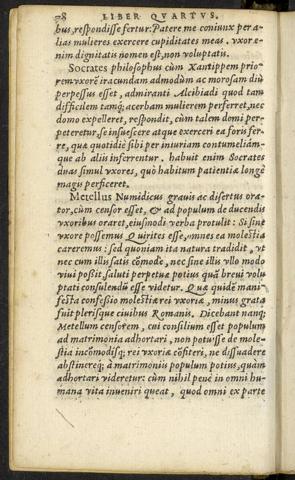 78 LIBER QVARTVS.
bus, respondisse fertur: Patere me coniunx per a-
lias mulieres exercere cupiditates meas. vxor e-
nim dignitatis nomen est, non voluptatis.
Socrates philosophus cùm Xantippem prio-
rem vxorē iracundam admodùm ac morosam diù
perpessus esset, admiranti Alcibiadi quod tam
difficilem tamq; acerbam mulierem perferret, nec
domo expelleret, respondit, cùm talem domi per-
peteretur, se insuescere atque exerceri ea foris fer-
re, quæ quotidiè sibi per iniuriam contumeliám-
que ab aliis inferrentur. habuit enim Socrates
duas simul vxores, quò habitum patientiæ longè
magis perficeret.
Metellus Numidicus grauis ac disertus ora-
tor, cùm censor esset, & ad populum de ducendis
vxoribus oraret, eiusmodi verba protulit: Si sine
vxore possemus Quirites esse, omnes ea molestia
careremus: sed quoniam ita natura tradidit, vt
nec cum illis satis cōmode, nec sine illis vllo modo
viui possit, saluti perpetuæ potius quā breui volu
ptati consulendū esse videtur. Quæ quidē mani-
festa confessio molestiæ rei vxoriæ, minus grata
fuit plerisque ciuibus Romanis. Dicebant nanq;
Metellum censorem, cui consilium esset populum
ad matrimonia adhortari, non potuisse de mole-
stia incōmodisq; rei vxoriæ cōfiteri, ne dissuadere
abstinereq; à matrimoniis populum potius, quàm
adhortari videretur: cùm nihil penè in omni hu-
mana vita inueniri queat, quod omni ex parte